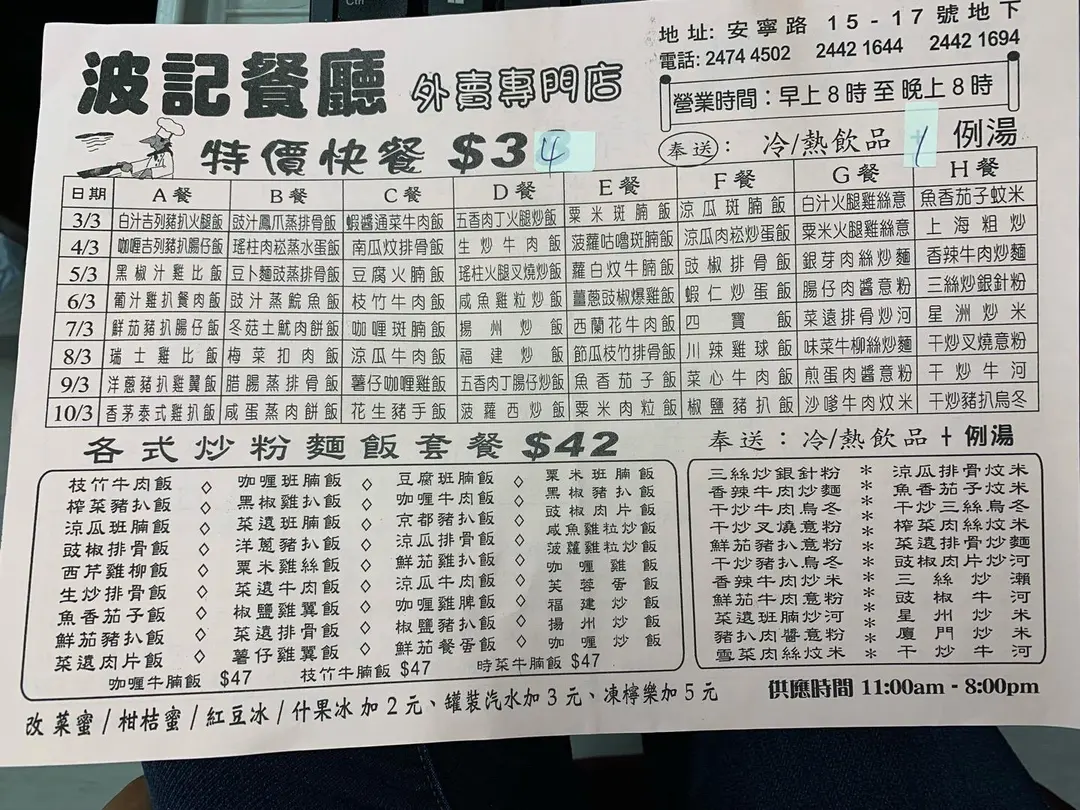 Ctrl
波記餐廳 外賣專門店
地址: 安寧路 15-17號地下
電話: 2474 4502 2442 1644 2442 1694
營業時間：早上8時至晚上8時
特價快餐 $34
奉送：冷/熱飲品 / 例湯
日期 A餐 B餐 C餐 D餐 E餐 F餐 G餐 H餐
3/3 白汁吉列豬扒火腿飯 豉汁鳳爪蒸排骨飯 蝦醬通菜牛肉飯 五香肉丁火腿炒飯 粟米斑腩飯 涼瓜斑腩飯 白汁火腿雞絲意 魚香茄子蚊米
4/3 咖喱吉列豬扒腸仔飯 瑤柱肉崧蒸水蛋飯 南瓜炆排骨飯 生炒牛肉飯 菠蘿咕嚕斑腩飯 涼瓜肉崧炒蛋飯 粟米火腿雞絲意 上海粗炒
5/3 黑椒汁雞比飯 豆卜麵豉蒸排骨飯 豆腐火腩飯 瑤柱火腿叉燒炒飯 蘿白炆牛腩飯 豉椒排骨飯 銀芽肉絲炒麵 香辣牛肉炒麵
6/3 葡汁雞扒餐肉飯 豉汁蒸鯇魚飯 枝竹牛肉飯 咸魚雞粒炒飯 薑蔥豉椒爆雞飯 蝦仁炒蛋飯 腸仔肉醬意粉 三絲炒銀針粉
7/3 鮮茄豬扒腸仔飯 冬菇土魷肉餅飯 咖喱斑腩飯 揚州炒飯 西蘭花牛肉飯 四寶飯 菜遠排骨炒河 星洲炒米
8/3 瑞士雞比飯 梅菜扣肉飯 涼瓜牛肉飯 福建炒飯 節瓜枝竹排骨飯 川辣雞球飯 味菜牛柳絲炒麵 干炒叉燒意粉
9/3 洋蔥豬扒雞翼飯 腊腸蒸排骨飯 薯仔咖喱雞飯 五香肉丁腸仔炒飯 魚香茄子飯 菜心牛肉飯 煎蛋肉醬意粉 干炒牛河
10/3 香茅泰式雞扒飯 咸蛋蒸肉餅飯 花生豬手飯 菠蘿西炒飯 粟米肉粒飯 椒鹽豬扒飯 沙嗲牛肉炆米 干炒豬扒烏冬
各式炒粉麵飯套餐 $42 奉送：冷/熱飲品 + 例湯
枝竹牛肉飯 ◇ 咖喱班腩飯 ◇ 豆腐班腩飯 ◇ 粟米班腩飯
榨菜豬扒飯 ◇ 黑椒雞扒飯 ◇ 咖喱牛肉飯 ◇ 黑椒豬扒飯
涼瓜班腩飯 ◇ 菜遠班腩飯 ◇ 京都豬扒飯 ◇ 豉椒肉片飯
豉椒排骨飯 ◇ 洋蔥豬扒飯 ◇ 涼瓜排骨飯 ◇ 咸魚雞粒炒飯
西芹雞柳飯 ◇ 粟米雞絲飯 ◇ 鮮茄雞扒飯 ◇ 菠蘿雞粒炒飯
生炒排骨飯 ◇ 菜遠牛肉飯 ◇ 涼瓜牛肉飯 ◇ 咖喱雞飯
魚香茄子飯 ◇ 椒鹽雞翼飯 ◇ 咖喱雞脾飯 ◇ 芙蓉蛋飯
鮮茄豬扒飯 ◇ 菜遠排骨飯 ◇ 椒鹽豬扒飯 ◇ 福建炒飯
菜遠肉片飯 ◇ 薯仔雞翼飯 ◇ 鮮茄餐蛋飯 ◇ 揚州炒飯
咖喱炒飯
咖喱牛腩飯 $47 枝竹牛腩飯 $47 時菜牛腩飯 $47
三絲炒銀針粉 * 涼瓜排骨炆米
香辣牛肉炒麵 * 魚香茄子炆米
干炒牛肉烏冬 * 干炒三絲烏冬
干炒叉燒意粉 * 榨菜肉絲炆米
鮮茄豬扒意粉 * 菜遠排骨炒麵
干炒豬扒烏冬 * 豉椒肉片炒河
香辣牛肉炒米 * 三絲炒瀨
鮮茄牛肉意粉 * 豉椒牛河
菜遠班腩炒河 * 星州炒米
豬扒肉醬意粉 * 廈門炒米
雪菜肉絲炆米 * 干炒牛河
供應時間 11:00am - 8:00pm
改菜蜜/柑桔蜜/紅豆冰/什果冰加2元、罐裝汽水加3元、凍檸樂加5元